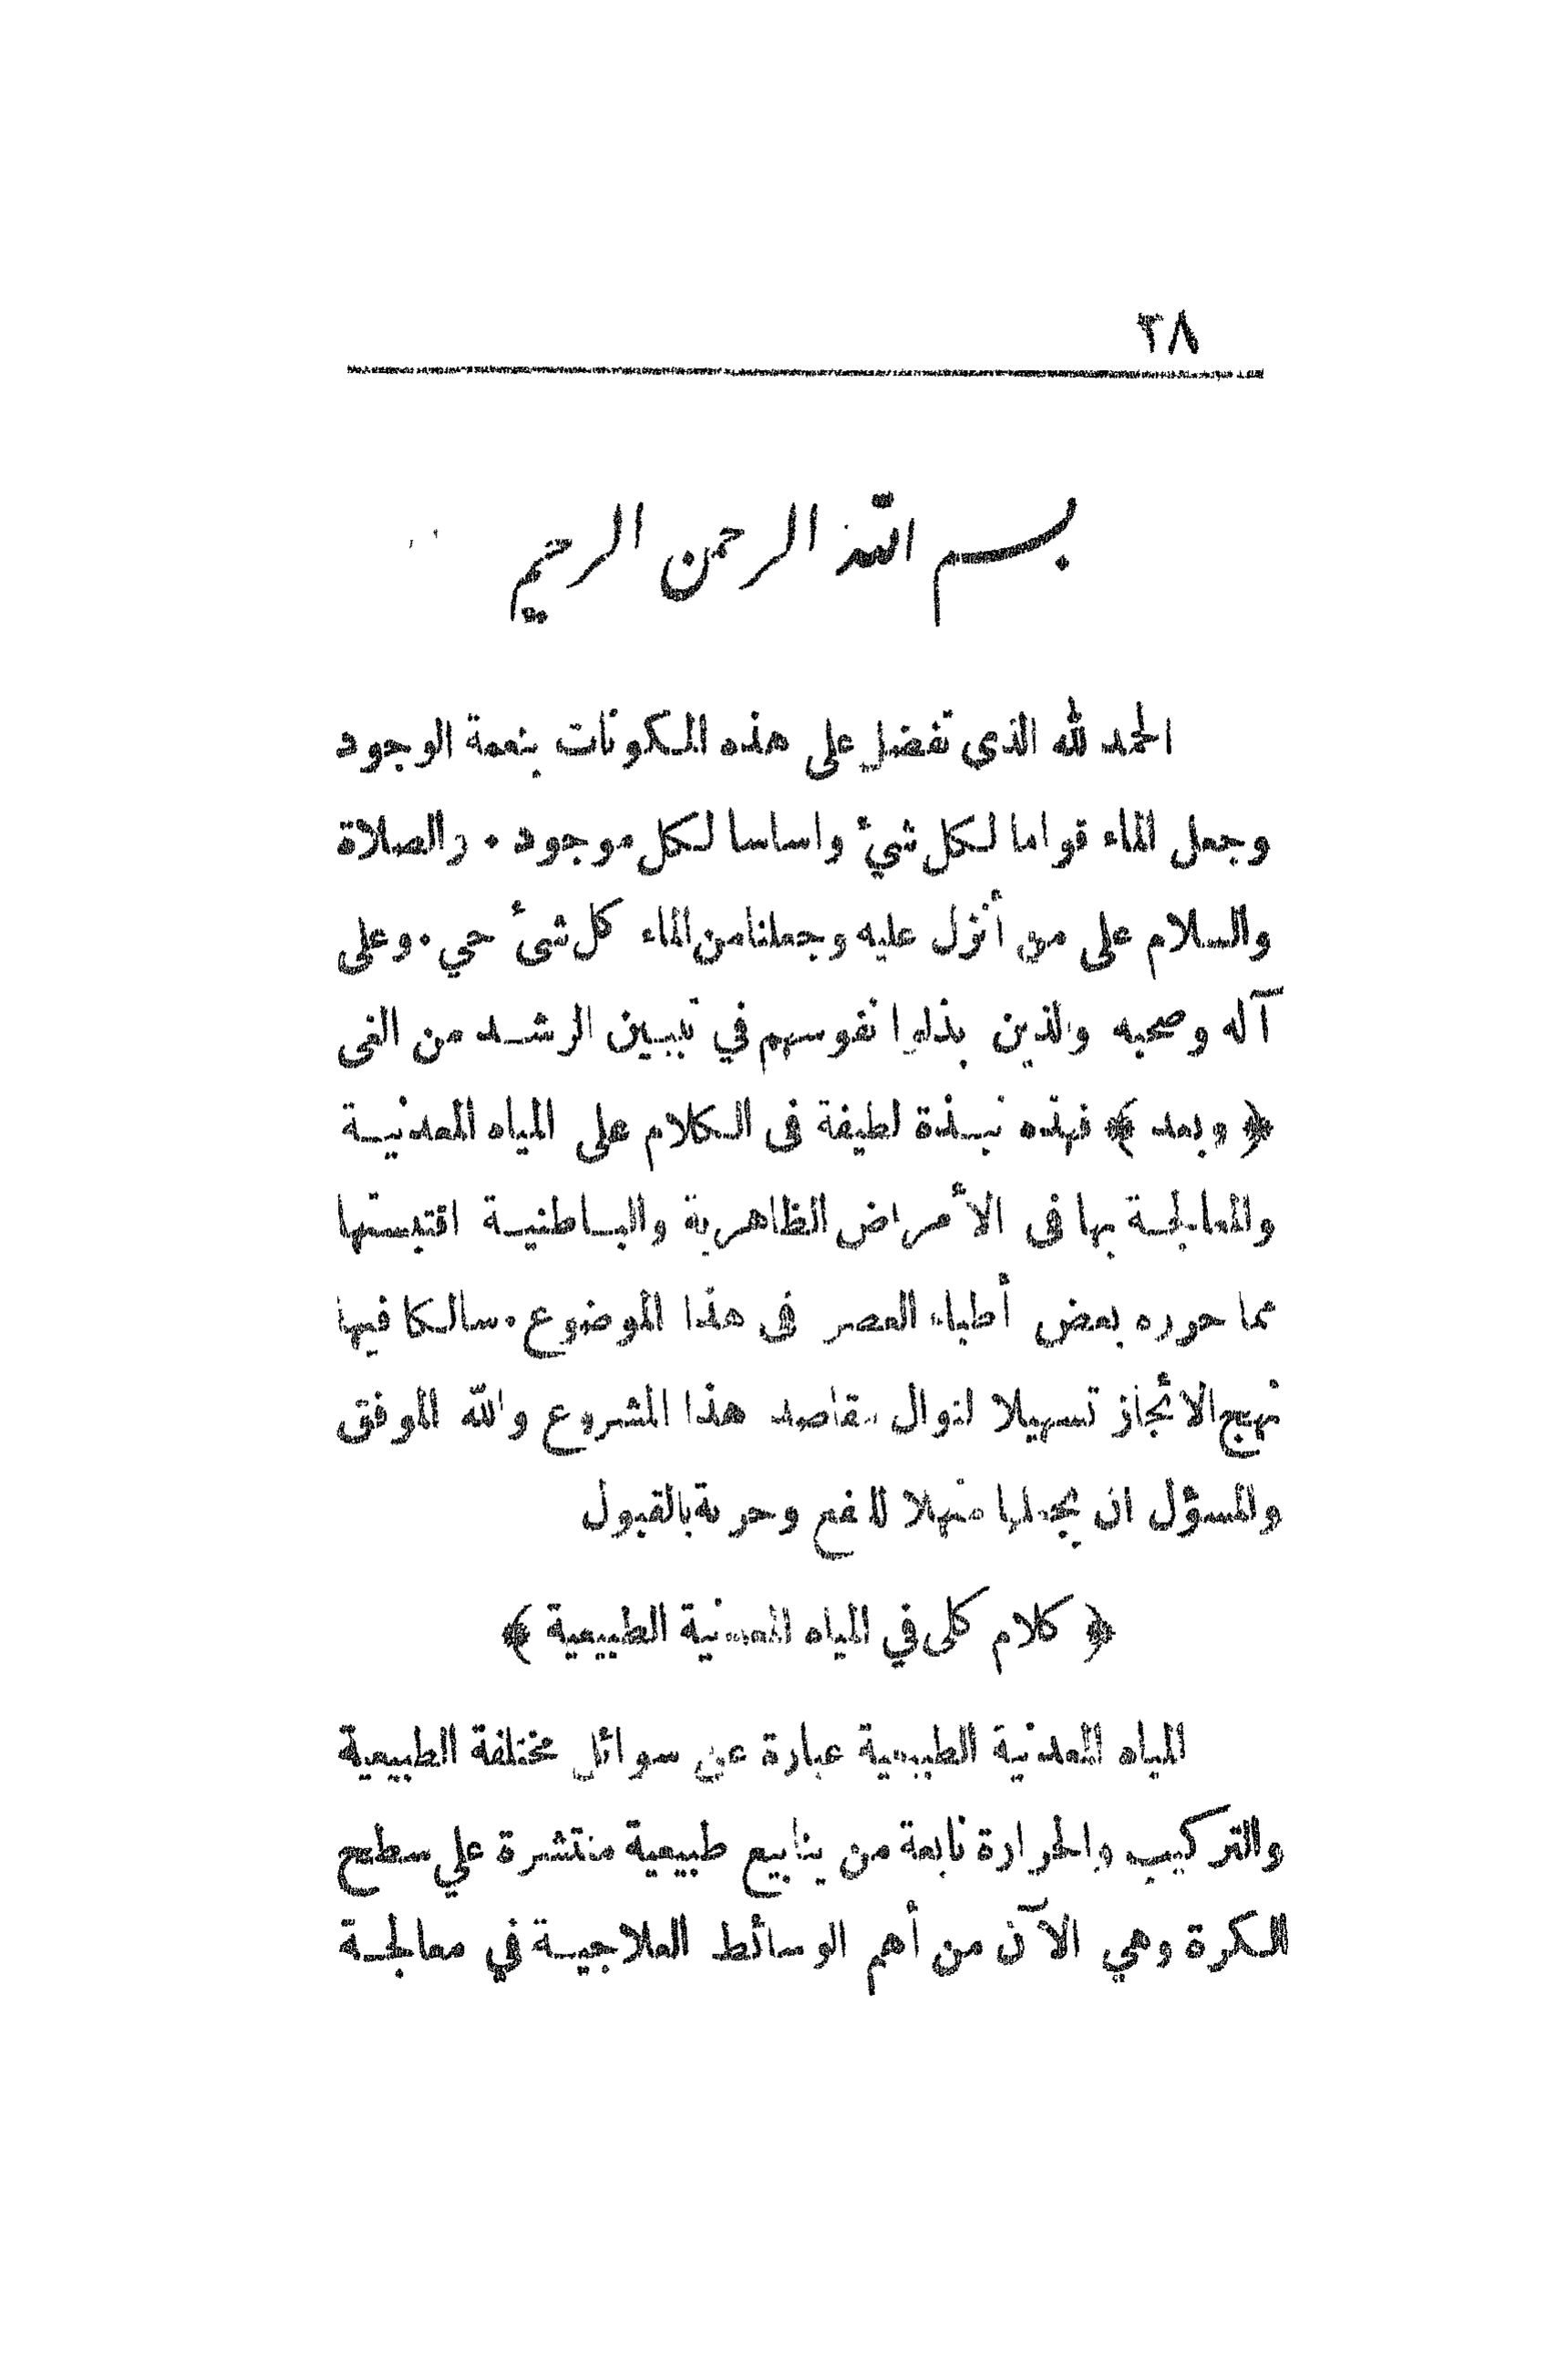 ٣٨
بسم الله الرحمن الرحيم
الحمد لله الذى تفضل على هذه المكونات بنعمة الوجود
وجعل الماء قواما لكل شيء واساسا لكل موجود . والصلاة
والسلام على من أنزل عليه وجعلنا من الماء كل شئ حي . وعلى
آله وصحبه والذين بذلوا نفوسهم في تبيين الرشد من الغى
﴿ وبعد ﴾ فهذه نبذة لطيفة فى الكلام على المياه المعدنية
والمعالجة بها فى الأمراض الظاهرية والباطنية اقتبستها
مما حوره بعض أطباء العصر فى هذا الموضوع . سالكا فيها
نهج الانجاز تسهيلا لنوال مقاصد هذا المشروع والله الموفق
والمسؤل ان يجعلها منهلا للنفع وحرية بالقبول
﴿ كلام كلى في المياه المعدنية الطبيعية ﴾
المياه المعدنية الطبيعية عبارة عن سوائل مختلفة الطبيعية
والتركيب والحرارة نابعة من ينابيع طبيعية منتشرة علي سطح
الكرة وهي الآن من أهم الوسائط العلاجية في معالجة